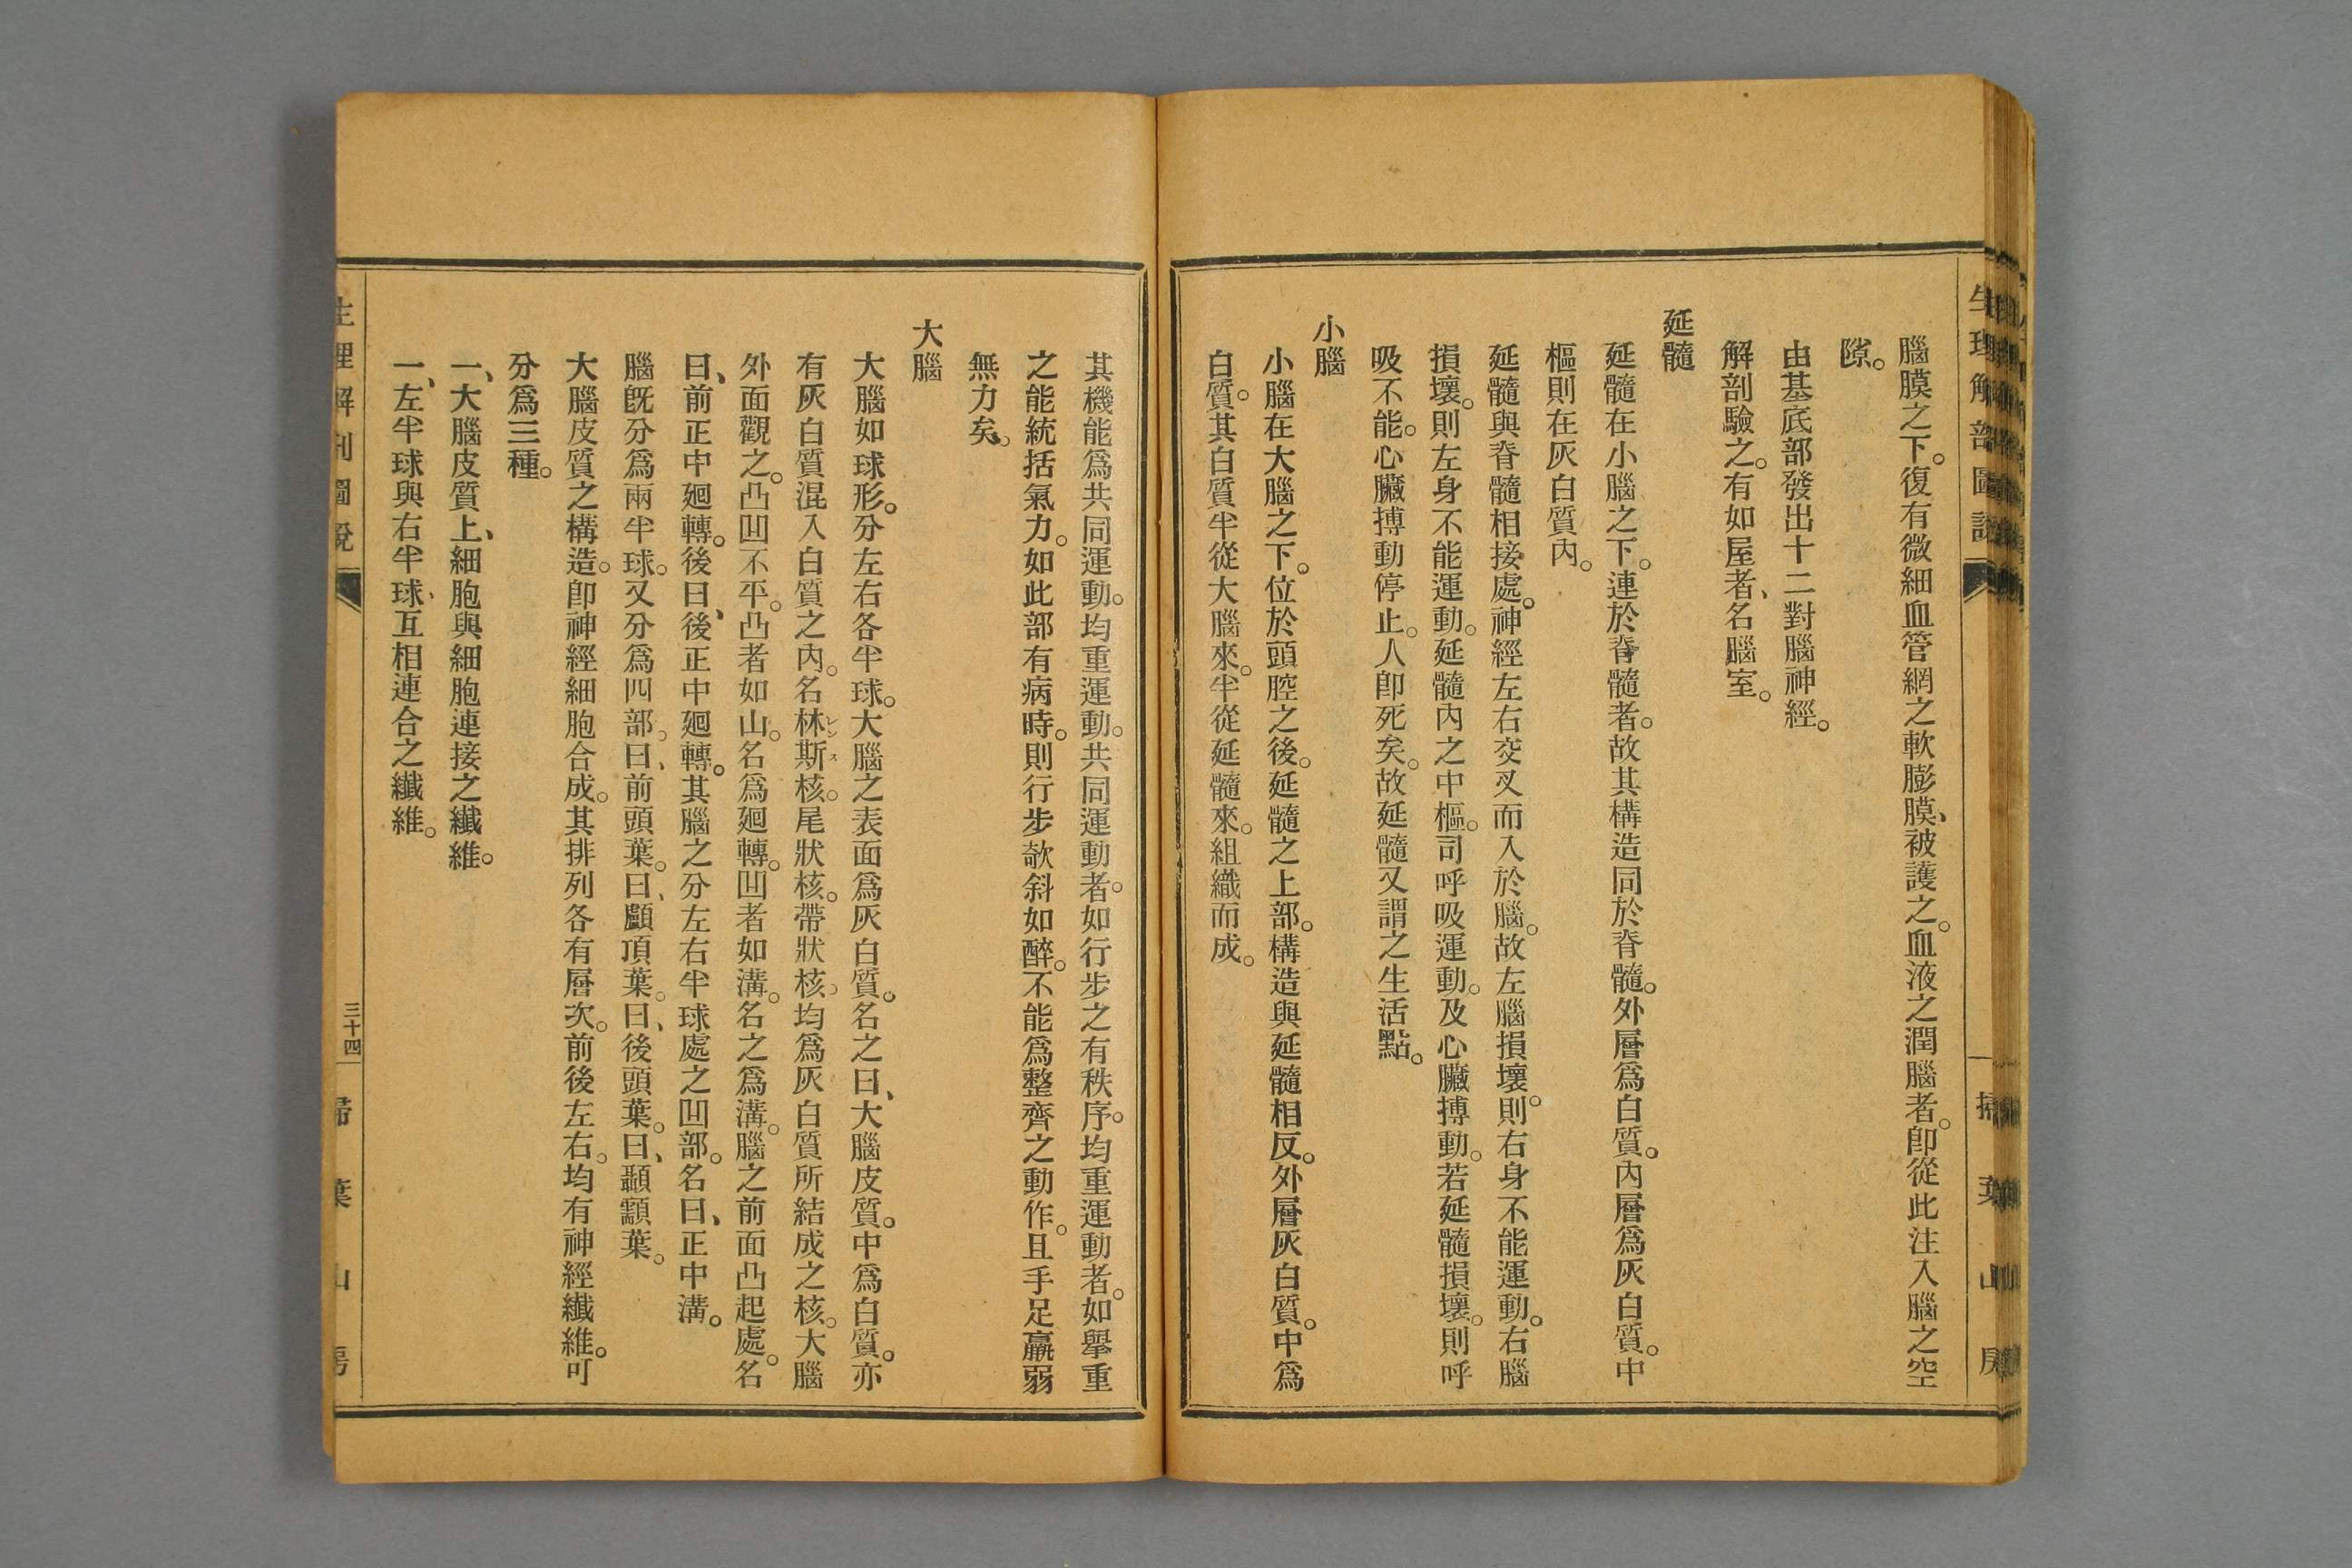 生理解剖圖說
掃葉山房
腦膜之下。復有微細血管網之軟膨膜、被護之。血液之潤腦者。卽從此注入腦之空
隙。
由基底部發出十二對腦神經。
解剖驗之。有如屋者、名腦室。
延髓
延髓在小腦之下。連於脊髓者。故其構造同於脊髓。外層爲白質。內層爲灰白質。中
樞則在灰白質內。
延髓與脊髓相接處。神經左右交叉而入於腦。故左腦損壞。則右身不能運動。右腦
損壞。則左身不能運動。延髓內之中樞。司呼吸運動。及心臟搏動。若延髓損壞。則呼
吸不能。心臟搏動停止。人卽死矣。故延髓又謂之生活點。
小腦
小腦在大腦之下。位於頭腔之後。延髓之上部。構造與延髓相反。外層灰白質。中爲
白質。其白質半從大腦來。半從延髓來。組織而成。
其機能爲共同運動。均重運動。共同運動者。如行步之有秩序。均重運動者。如舉重
之能統括氣力。如此部有病時。則行步欹斜如醉。不能爲整齊之動作。且手足羸弱
無力矣。
大腦
大腦如球形。分左右各半球。大腦之表面爲灰白質。名之曰、大腦皮質。中爲白質。亦
有灰白質混入白質之內。名林斯核。尾狀核。帶狀核。均爲灰白質所結成之核。大腦
レンス
外面觀之。凸凹不平。凸者如山。名爲廻轉。凹者如溝。名之爲溝。腦之前面凸起處。名
曰、前正中廻轉。後曰、後正中廻轉。其腦之分左右半球處之凹部。名曰、正中溝。
腦旣分爲兩半球。又分爲四部。曰、前頭葉。曰、顱頂葉。曰、後頭葉。曰、顳顬葉。
大腦皮質之構造。卽神經細胞合成。其排列各有層次。前後左右。均有神經纖維。可
分爲三種。
一、大腦皮質上、細胞與細胞連接之纖維。
一、左半球與右半球、互相連合之纖維。
生理解剖圖說
三十四
掃葉山房